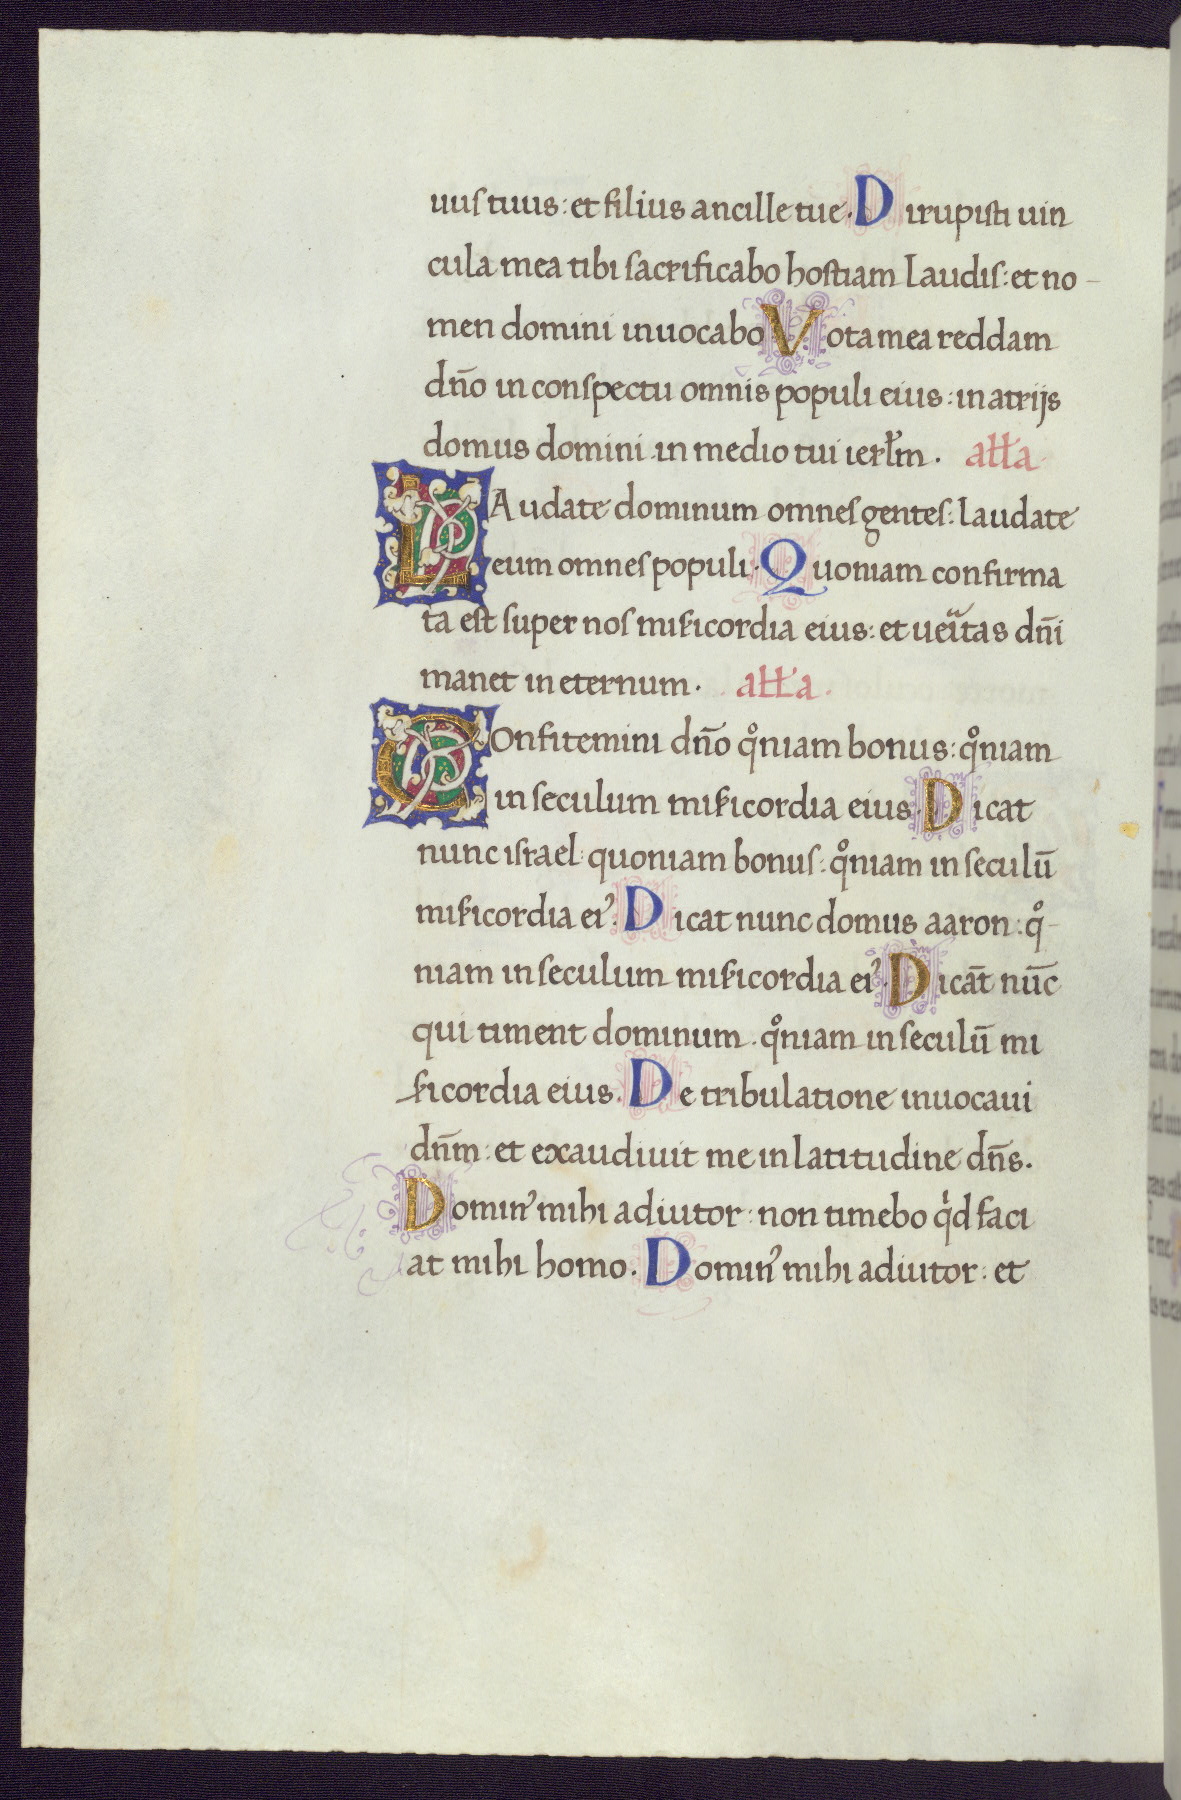 uus tuus: et filius ancille tue. Dirupisti uin
cula mea tibi sacrificabo hostiam laudis: et no-
men domini inuocabo Vota mea reddam
dño in conspectu omnis populi eius: in atrijs
domus domini in medio tui ierłm. ałła
LAudate dominum omnes gentes: laudate
eum omnes populi. Quoniam confirma
ta est super nos mịicordia eius: et ueitas dñi
manet in eternum. ałła.
COnfitemini dño qͦniam bonus: qͦniam
in seculum mificordia eius. Dicat
nunc israel quoniam bonus: qͦniam in seculū
mificordia ei᾽. Dicat nunc domus aaron: qͦ-
niam in seculum mificordia ei᾽. Dicāt nūc
qui timent dominum. qͦniam in seculū mi
ficordia eius. De tribulatione inuocaui
dñm: et exaudiuit me in latitudine dñs.
Domin᾽ mihi adiutor: non timebo qͥd faci
at mihi homo. Domin᾽ mihi adiutor: et